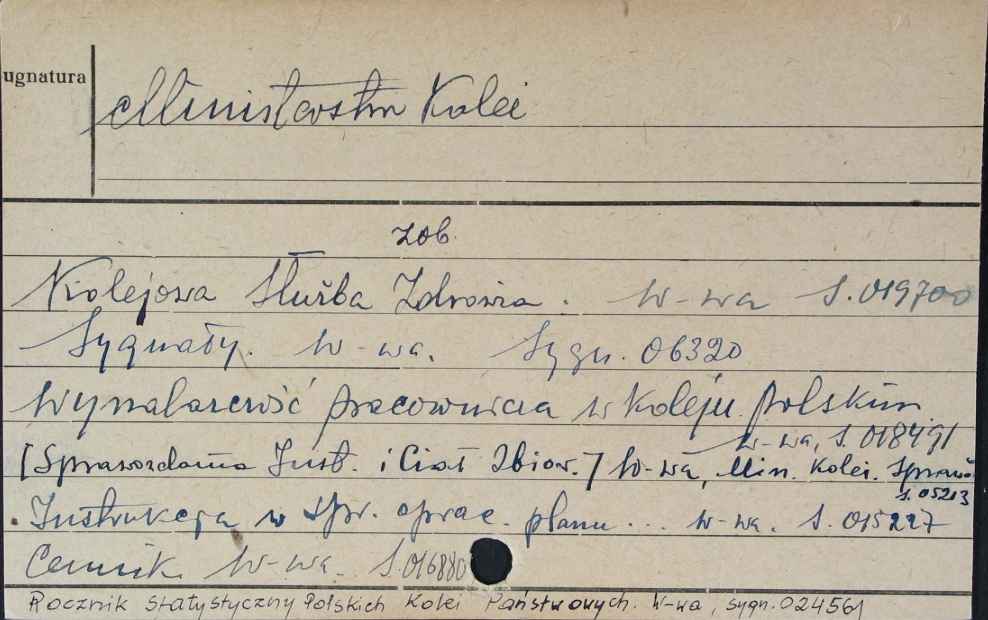 ugnatura
Ministerstw Kolei
zob.
Kolejowa Służba Zdrowia. W-wa S. 019700
Sygnały. W-wa. Sygn. 06320
Wynalazczość pracownicza w Koleju polskim
W-wa, S. 018491
[Sprawozdania Inst. i Ciał Zbior.] W-wa, Min. Kolei.
S. 05213
Instrukcja w spr. oprac. planu... W-wa. S. 015227
Cennik W-wa. S.016880
Rocznik Statystyczny Polskich Kolei Państwowych. W-wa, sygn. 024561